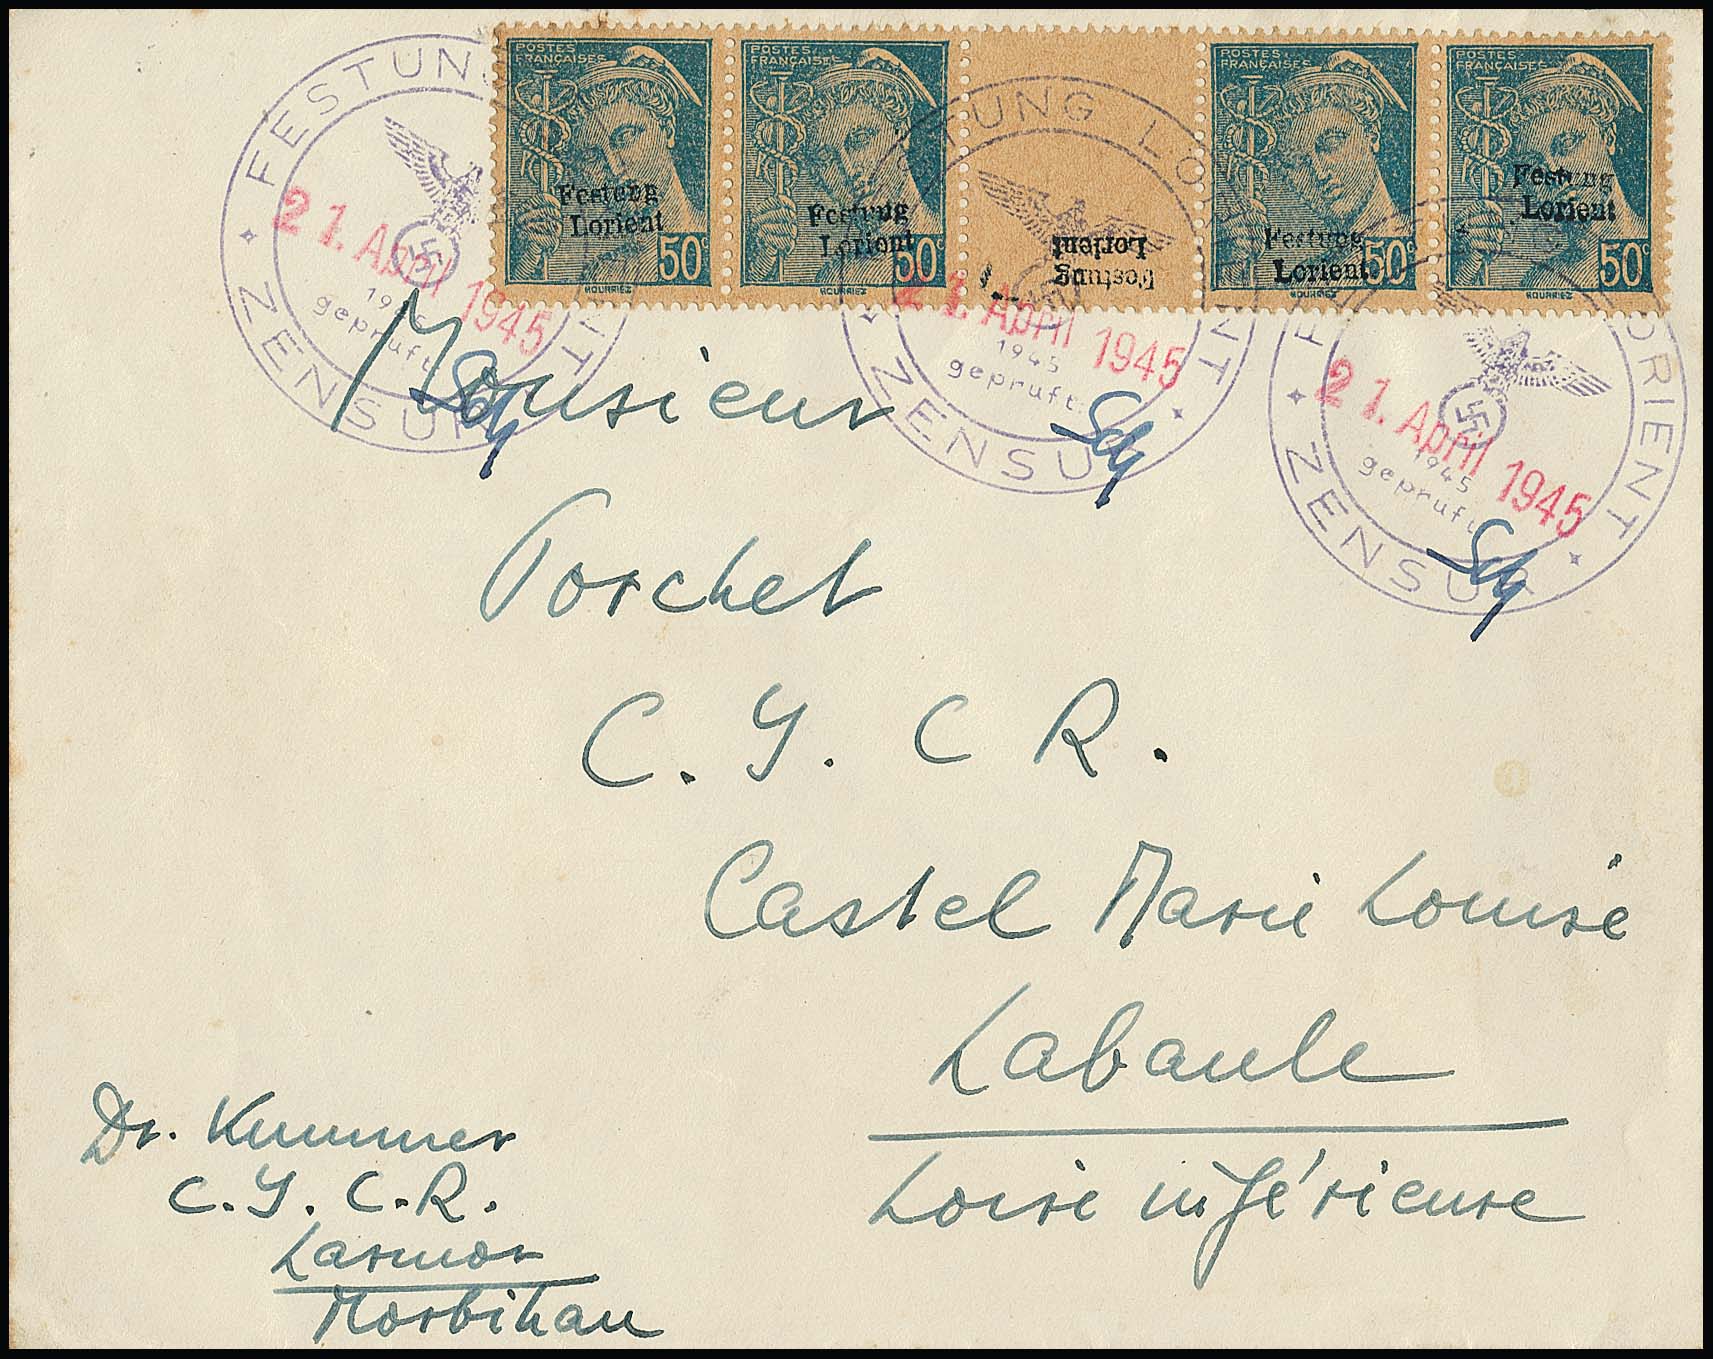 POSTES
FRANÇAISES
Festung
Lorient
50c
HOURRIEZ
POSTES
FRANÇAISES
Festung
Lorient
50c
HOURRIEZ
Festung
Lorient
POSTES
FRANÇAISES
Festung
Lorient
50c
HOURRIEZ
POSTES
FRANÇAISES
Festung
Lorient
50c
HOURRIEZ
FESTUNG
ZENSUR
21. April 1945
1945
geprüft
FESTUNG LORIENT
ZENSUR
21. April 1945
1945
geprüft
LORIENT
ZENSUR
21. April 1945
1945
geprüft
Monsieur
Porchet
C. I. C R.
Castel Marie Louise
Labaule
Loire inférieure
Dr. Kummer
C. I. C. R.
Larmor
Morbihan